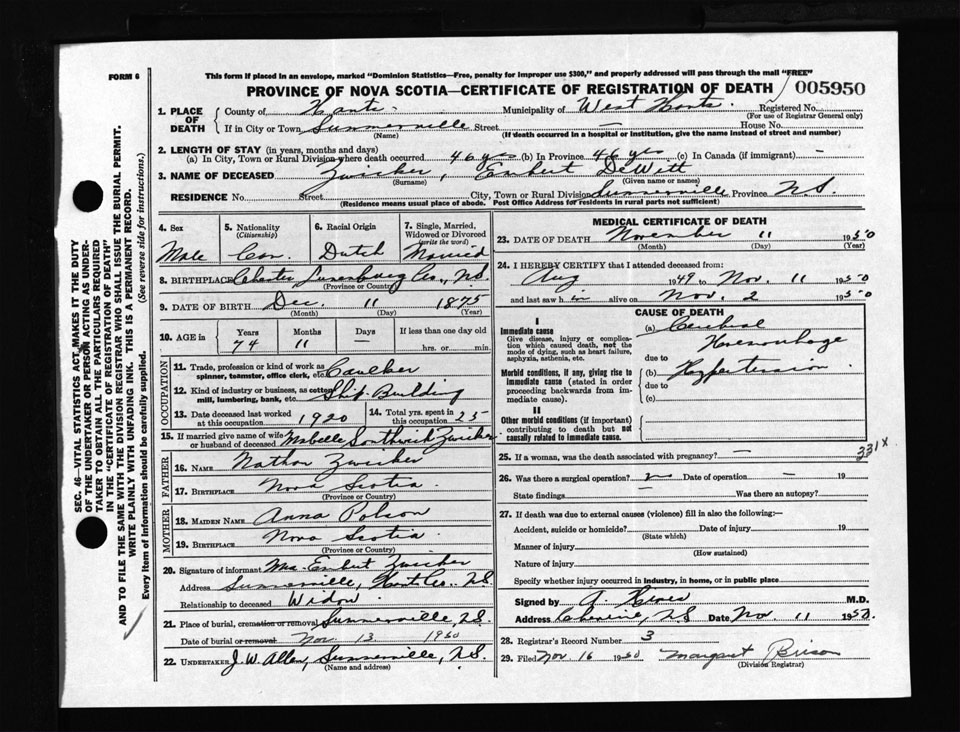 FORM 6
This form if placed in an envelope, marked "Dominion Statistics—Free, penalty for improper use $300," and properly addressed will pass through the mail "FREE"
PROVINCE OF NOVA SCOTIA—CERTIFICATE OF REGISTRATION OF DEATH 005950
1. PLACE OF DEATH
County of Hants Municipality of West Hants Registered No.
(For use of Registrar General only)
If in City or Town Summerville Street — House No.
(Name) (If death occurred in a hospital or institution, give the name instead of street and number)
2. LENGTH OF STAY (in years, months and days)
(a) In City, Town or Rural Division where death occurred 46 yrs (b) In Province 46 yrs (c) In Canada (if immigrant) —
3. NAME OF DECEASED Zwicker, Enbert DeWitt
(Surname) (Given name or names)
RESIDENCE No. Street City, Town or Rural Division Summerville Province N.S.
(Residence means usual place of abode. Post Office Address for residents in rural parts not sufficient)
4. Sex
Male
5. Nationality
(Citizenship)
Can.
6. Racial Origin
Dutch
7. Single, Married, Widowed or Divorced
(write the word)
Married
8. BIRTHPLACE Chester Lunenburg Co., N.S.
(Province or Country)
9. DATE OF BIRTH Dec. 11 1875
(Month) (Day) (Year)
10. AGE in
Years Months Days If less than one day old
74 11 — hrs. or min.
OCCUPATION
11. Trade, profession or kind of work as spinner, teamster, office clerk, etc. Caulker
12. Kind of industry or business, as cotton mill, lumbering, bank, etc. Ship-Building
13. Date deceased last worked at this occupation 1920
14. Total yrs. spent in this occupation 25
15. If married give name of wife or husband of deceased Mabelle Southwick Zwicker
FATHER
16. NAME Nathan Zwicker
17. BIRTHPLACE Nova Scotia
(Province or Country)
MOTHER
18. MAIDEN NAME Anna
19. BIRTHPLACE Nova Scotia
(Province or Country)
20. Signature of informant Mrs. Enbert Zwicker
Address Summerville, Hants Co. N.S.
Relationship to deceased Widow
21. Place of burial, cremation or removal Summerville, N.S.
Date of burial or removal Nov. 13 1950
22. UNDERTAKER J.W. Allen, Summerville, N.S.
(Name and address)
MEDICAL CERTIFICATE OF DEATH
23. DATE OF DEATH November 11 1950
(Month) (Day) (Year)
24. I HEREBY CERTIFY that I attended deceased from:
Aug 1949 to Nov. 11 1950
and last saw him alive on Nov. 2 1950
CAUSE OF DEATH
I
Immediate cause
Give disease, injury or complication which caused death, not the mode of dying, such as heart failure, asphyxia, asthenia, etc.
(a) Cerebral Haemorrhage
due to
Morbid conditions, if any, giving rise to immediate cause (stated in order proceeding backwards from immediate cause).
(b) Hypertension
due to
(c)
II
Other morbid conditions (if important) contributing to death but not causally related to immediate cause.
25. If a woman, was the death associated with pregnancy? —
331X
26. Was there a surgical operation? Date of operation — 19
State findings Was there an autopsy?
27. If death was due to external causes (violence) fill in also the following:—
Accident, suicide or homicide? Date of injury 19
(State which)
Manner of injury
(How sustained)
Nature of injury
Specify whether injury occurred in industry, in home, or in public place
Signed by M.D.
Address N.S. Date Nov. 11 1950.
28. Registrar's Record Number 3
29. Filed Nov. 16 1950 Margaret
(Division Registrar)
SEC. 46—VITAL STATISTICS ACT MAKES IT THE DUTY
OF THE UNDERTAKER OR PERSON ACTING AS UNDER-
TAKER TO OBTAIN ALL THE PARTICULARS REQUIRED
IN THE "CERTIFICATE OF REGISTRATION OF DEATH"
AND TO FILE THE SAME WITH THE DIVISION REGISTRAR WHO SHALL ISSUE THE BURIAL PERMIT.
WRITE PLAINLY WITH UNFADING INK. THIS IS A PERMANENT RECORD.
Every item of Information should be carefully supplied. (See reverse side for instructions.)